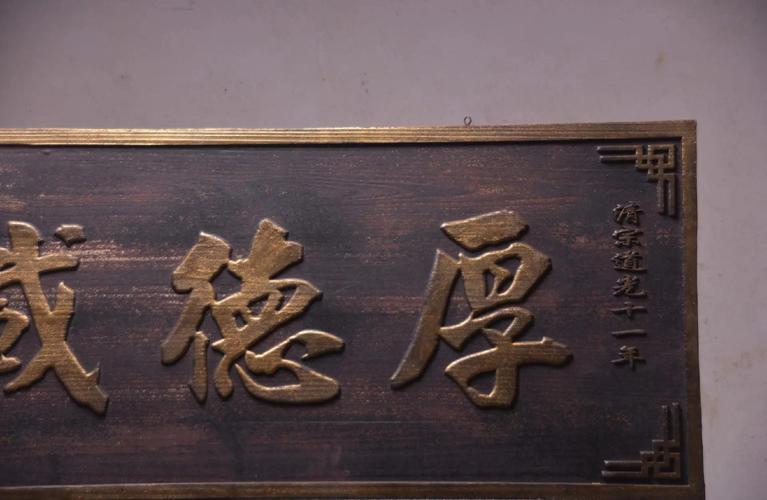 清宗道光十一年
厚德